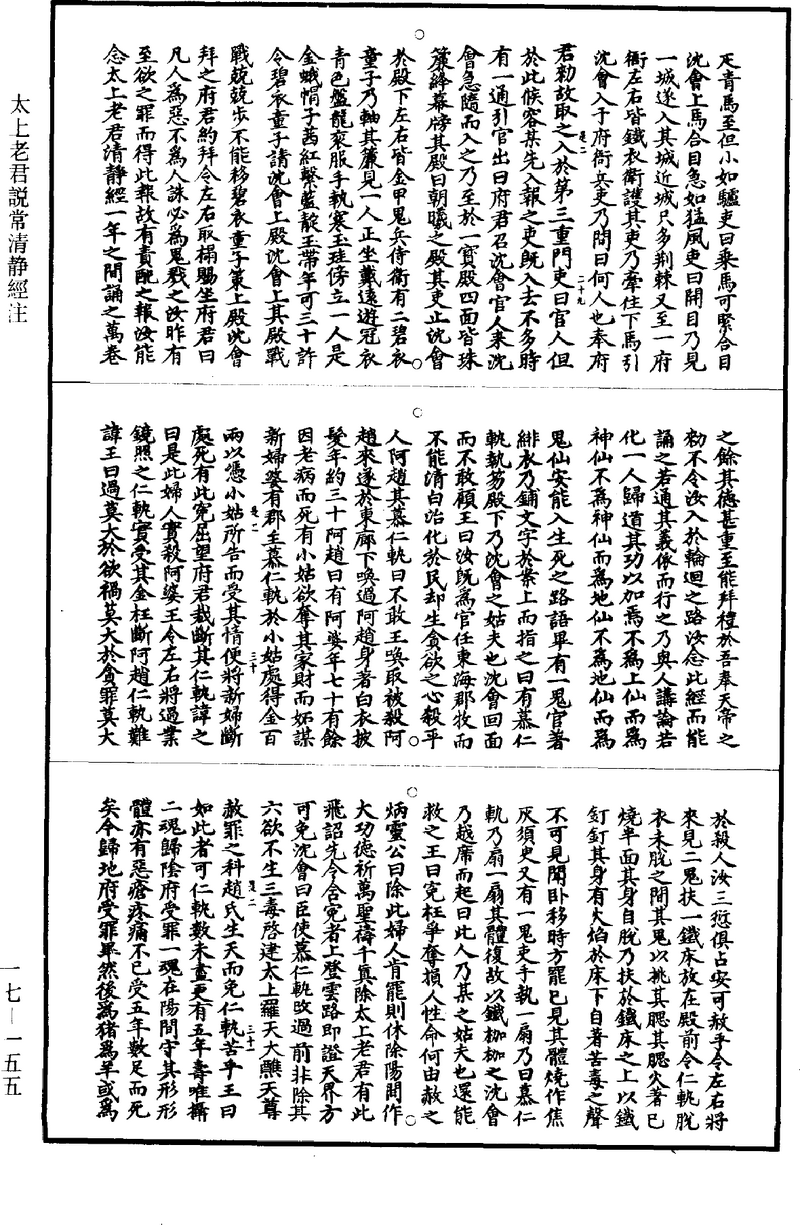 太上老君説常清静經注
疋青馬至但小如驢吏曰乘馬可緊合目
沈會上馬合目急如猛風吏曰開目乃見
一城遂入其城近城只多荆棘又至一府
衙左右皆鐵衣衛護其吏乃牽住下馬引
沈會入于府衙兵吏乃問曰何人也奉府
君勑故取之入於第三重門吏曰官人但
於此候容某先入報之吏既入去不多時
有一通引官出曰府君召沈會官人来沈
會急隨而入之乃至於一寳殿四面皆珠
簾絳幕牓其殿曰朝曦之殿其吏止沈會
於殿下左右皆金甲鬼兵侍衛有二碧衣
童子乃軸其簾見一人正坐戴遠遊冠衣
青色盤龍衮服手執寒玉珪傍立一人是
金蛾帽子茜紅繫藍靛玉帶年可三十許
令碧衣童子請沈會上殿沈會上其殿戰
戰兢兢步不能移碧衣童子策上殿沈會
拜之府君約拜令左右取榻賜坐府君曰
凡人為惡不為人誅必為鬼戮之汝昨有
至欲之罪而得此報故有責酷之報汝能
念太上老君清静經一年之間誦之萬卷
之餘其德甚重至能拜禮於吾奉天帝之
勑不令汝入於輪迴之路汝念此經而能
誦之若通其義依而行之乃與人講論若
化一人歸道其功以加焉不為上仙而為
神仙不為神仙而為地仙不為地仙而為
鬼仙安能入生死之路語畢有一鬼官著
緋衣乃鋪文字於案上而指之曰有慕仁
軌執笏殿下乃沈會之姑夫也沈會回面
而不敢顧王曰汝既為官任東海郡牧而
不能清白治化於民却生貪欲之心殺平
人阿趙其慕仁軌曰不敢王喚取被殺阿
趙來遂於東廊下喚過阿趙身著白衣披
髮年約三十阿趙曰有阿婆年七十有餘
因老病而死有小姑欲奪其家財而妬謀
新婦婆有郡主慕仁軌於小姑處得金百
兩以憑小姑所告而受其情便將新婦斷
處死有此寃屈望府君裁斷其仁軌諱之
曰是此婦人實殺阿婆王令左右將過業
鏡照之仁軌實受其金枉斷阿趙仁軌難
諱王曰過莫大於欲禍莫大於貪罪莫大
於殺人汝三愆俱占安可赦乎令左右將
來見二鬼扶一鐵床放在殿前令仁軌脱
衣未脱之間其鬼以挑其腮其腮火著已
燒半面其身自脱乃扶於鐵床之上以鐵
釘釘其身有火焰於床下自著苦毒之聲
不可見聞卧移時方罷已見其體燒作焦
灰須臾又有一鬼吏手執一扇乃曰慕仁
軌乃扇一扇其體復故以鐵枷枷之沈會
乃越席而起曰此人乃某之姑夫也還能
救之王曰寃枉爭奪損人性命何由赦之
炳靈公曰除此婦人肯罷則休除陽間作
大功德祈萬聖禱千真除太上老君有此
飛詔先令含寃者上登雲路即證天界方
可免沈會曰臣使慕仁軌改過前非除其
六欲不生三毒啓建太上羅天大醮天尊
赦罪之科趙氏生天而免仁軌苦乎王曰
如此者可仁軌數未盡更有五年壽唯攝
二魂歸陰府受罪一魂在陽間守其形形
體亦有惡瘡疼痛不已受五年數足而死
矣今歸地府受罪畢然後為猪為羊或為
一七—一五五